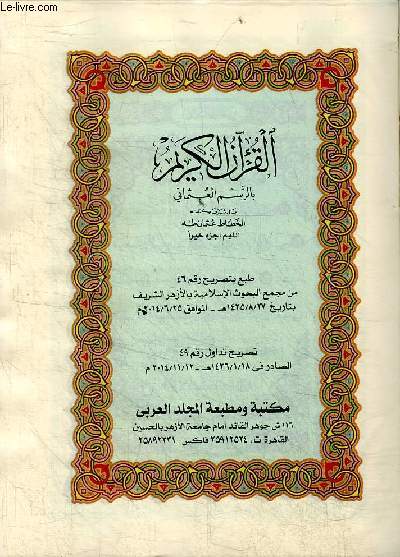 Le-livre.com
القرآن الكريم
بالرسم العثماني
الخطاط عثمان طه
اللهم اجزه خيرا
طبع بتصريح رقم ٤٦
من مجمع البحوث الإسلامية بالأزهر الشريف
بتاريخ ١٤٣٥/٨/٢٧هـ - الموافق ٢٠١٤/٦/٢٥م
تصريح تداول رقم ٤٩
الصادر فى ١٤٣٦/١/١٨هـ - ٢٠١٤/١١/١٢م
مكتبة ومطبعة المجلد العربى
١١٦ ش جوهر القائد أمام جامعة الأزهر بالحسين
القاهرة ت. ٢٥٩١٢٥٢٤ فاكس ٢٥٨٩٢٢٣٦